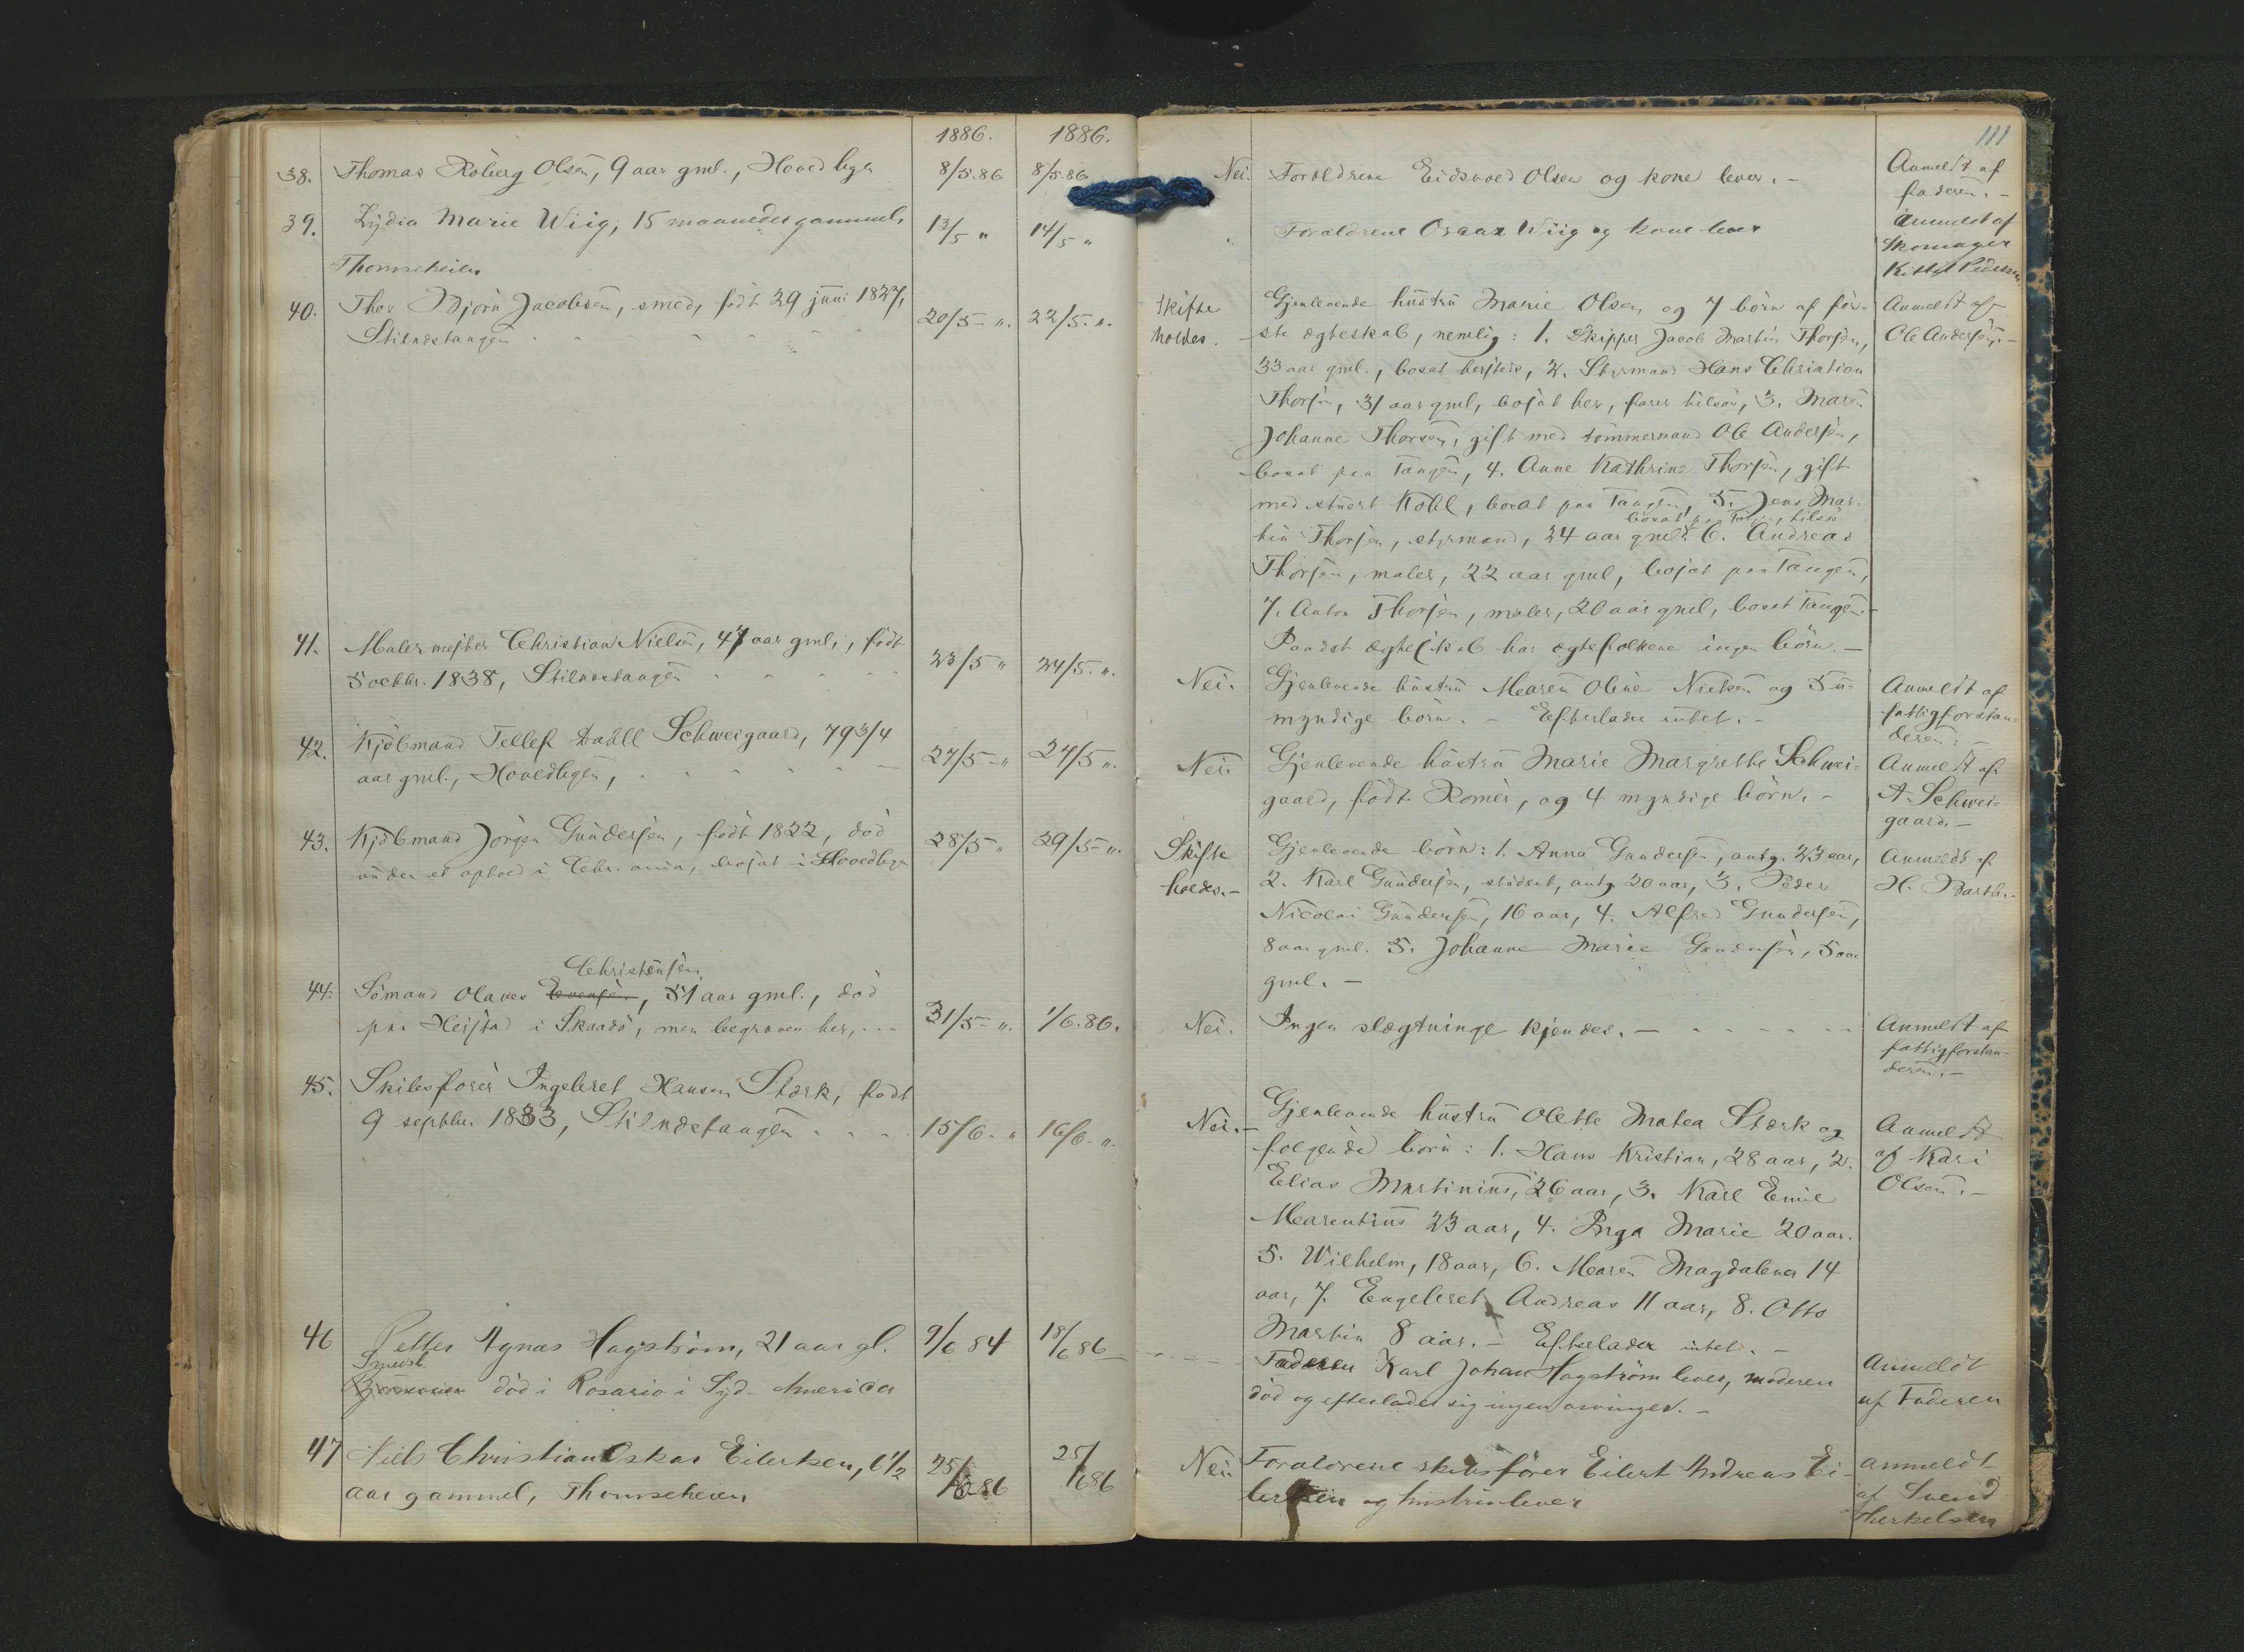 1886. 1886.
38. Thomas Roberg Olsen, 9 aar gml., Hovedbyen 8/5.86 8/5.86
39. Lydia Marie Wiig, 15 maaneder gammel, 13/5 " 14/5 "
Thomseheien
40. Thor Bjørn Jacobsen, smed, født 29 juni 1827, 20/5 - ". 22/5. ".
Stilnestangen
41. Malermester Christian Nielsen, 47 aar gml., født
5 octbr. 1838, Stilnestangen 23/5 " 24/5. ".
42. Kjøbmand Tellef Dahll Schweigaard, 79 3/4
aar gml., Hovedbyen, 27/5 - " 27/5 ".
43. Kjøbmand Jørgen Gundersen, født 1822, død 28/5 " 29/5 - ".
under et ophold i Chr.ania, bosat i Hovedbyen
Christensen
44. Sømand Olaves Evensen, 51 aar gml., død
paa Heistad i Skaadø, men begraven her, 31/5 - ". 1/6.86.
45. Skibsfører Ingebret Hansen Stærk, født
9 septbr. 1833, Stilnestangen 15/6 - " 16/6 - ".
46 Petter Agnas Hagstrøm, 21 aar gl. 9/6 84 18/6 86
Smedsb.
død i Rosario i Syd-America
47 Niels Christian Oskar Eilertsen, 6 1/2 25/6-86 25/6 86
aar gammel, Thomseheien
111
Nei. Forældrene Eidsvold Olsen og kone lever. - Anmeldt af
faderen. -
" Forældrene Oscar Wiig og kone lever Anmeldt af
Skomager
Kittel Pedersen
Skifte Gjenlevende hustru Marie Olsen og 7 børn af før- Anmeldt af
holdes. ste ægteskab, nemlig: 1. Skipper Jacob Martin Thorsen, Ole Andersen. -
33 aar gml., bosat hersteds, 2. Styrmand Hans Christian
Thorsen, 31 aar gml, bosat her, farer tilsøs, 3. Maren
Johanne Thorsen, gift med tømmermand Ole Andersen,
bosat paa Tangen, 4. Anne Kathrine Thorsen, gift
med stuert Kohl, bosat paa Tangen, 5. Jens Mar-
bosat paa Tangen, tilsøs
tin Thorsen, styrmand, 24 aar gml. 6. Andreas
Thorsen, maler, 22 aar gml, bosat paa Tangen,
7. Anton Thorsen, maler, 20 aar gml, bosat Tangen. -
I andet ægteskab har ægtefolkene ingen børn. -
Nei. Gjenlevende hustru Maren Oline Nielsen og 5 u- Anmeldt af
myndige børn. - Efterlader intet. - fattigforstan-
deren. -
Nei. Gjenlevende hustru Marie Margrethe Schwei- Anmeldt af
gaard, født Rømer, og 4 myndige børn. - A. Schwei-
gaard. -
Skifte Gjenlevende børn: 1. Anna Gundersen, antg. 23 aar, Anmeldt af
holdes. - 2. Karl Gundersen, student, antg 20 aar, 3. Peder H. Barth. -
Nicolai Gundersen, 16 aar, 4. Alfred Gundersen,
8 aar gml. 5. Johanne Marie Gundersen, 5 aar
gml. -
Nei. Ingen slægtninge kjendes. - Anmeldt af
fattigforstan-
deren. -
Nei. - Gjenlevende hustru Olette Matea Stærk og Anmeldt
følgende børn: 1. Hans Kristian, 28 aar, 2. af Kari
Elias Martinius, 26 aar, 3. Karl Emil Olsen. -
Marentius 23 aar, 4. Inga Marie 20 aar.
5. Wilhelm, 18 aar, 6. Maren Magdalena 14
aar, 7. Engebret Andreas 11 aar, 8. Otto
Martin 8 aar. - Efterlader intet. -
Faderen Karl Johan Hagstrøm lever, moderen Anmeldt
død og efterlader sig ingen arvinger. - af Faderen
Nei Forældrene skibsfører Eilert Andreas Ei- anmeldt
lertsen og hustru lever af Svend
Therkelsen